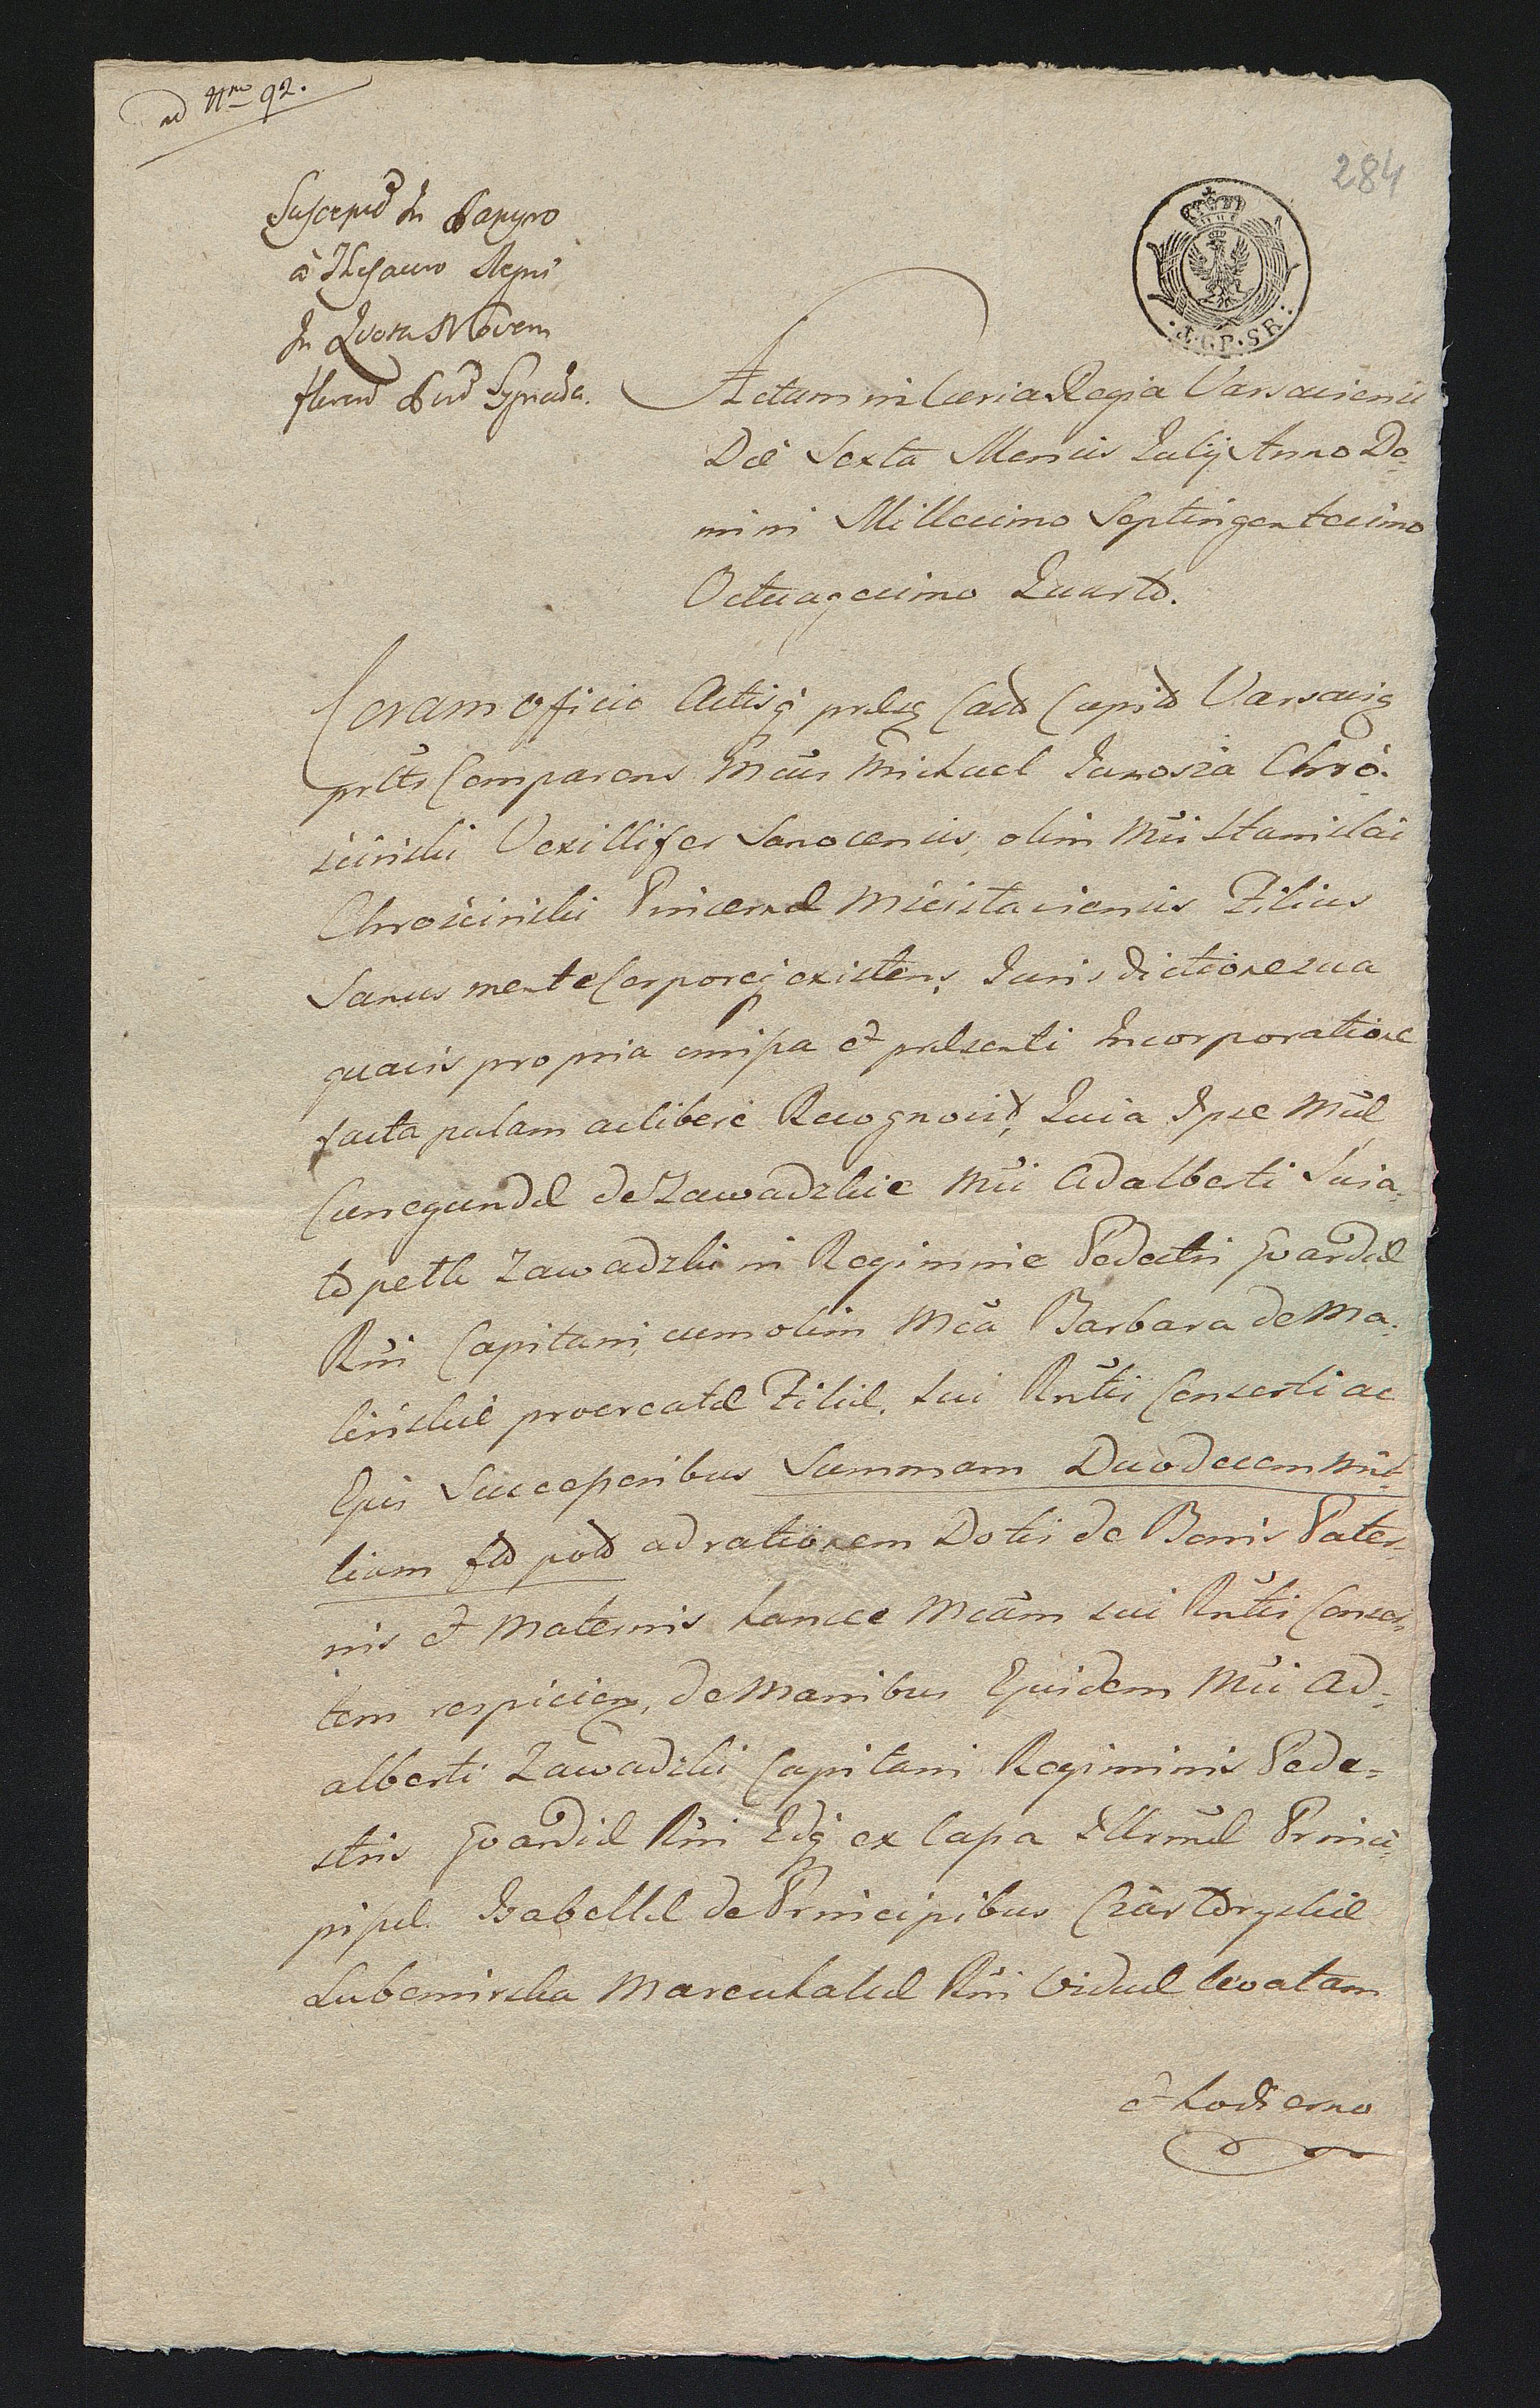 ad Nro 92.
284
Suscept in Papyro
à Thesauro Regni
In Quota Novem
floren Pol Signata.
J.G.P.SR:
Actum in Curia Regia Varsaviensi
Die Sexta Mensis Julij Anno Do=
mini Millesimo Septingentesimo
Octuagesimo Quarto.
Coram Officio Actisq
Comparens Mcus Michael Junosza Chro=
scinski Vexillifer Sanocensis, olim Mci Stanislai
Chroscinski Pincernæ Mscistaviensis Filius
Sanus mente Corporeq existens, Jurisdictione sua
quavis propria omissa et præsenti Incorporatione
facta palam ac libere Recognovit, Quia Ipse Mcæ
Cunegundæ de Zawadzkie Mci Adalberti Suia=
topelk Zawadzki in Regimine Pedestri Gvardiæ
Rni Capitani, cum olim Mca Barbara de Ma=
linskie procreatæ Filiæ, sui Rntis Consorti ac
Ejus Successoribus Summam Duodecem Mil=
lium fld pold ad rationem Dotis de Bonis Pater=
nis et Maternis hancce Mcam sui Rntis Consor=
tem respicien, de Manibus Ejusdem Mci Ad=
alberti Zawadzki Capitani Regiminis Pede=
stris Gvardiæ Rni Edq ex Capsa Illrmæ Princi=
pissæ Isabellæ de Principibus Czartoryskie
Lubomirska Mareschalcæ Rni Viduæ levatam
et hodierno